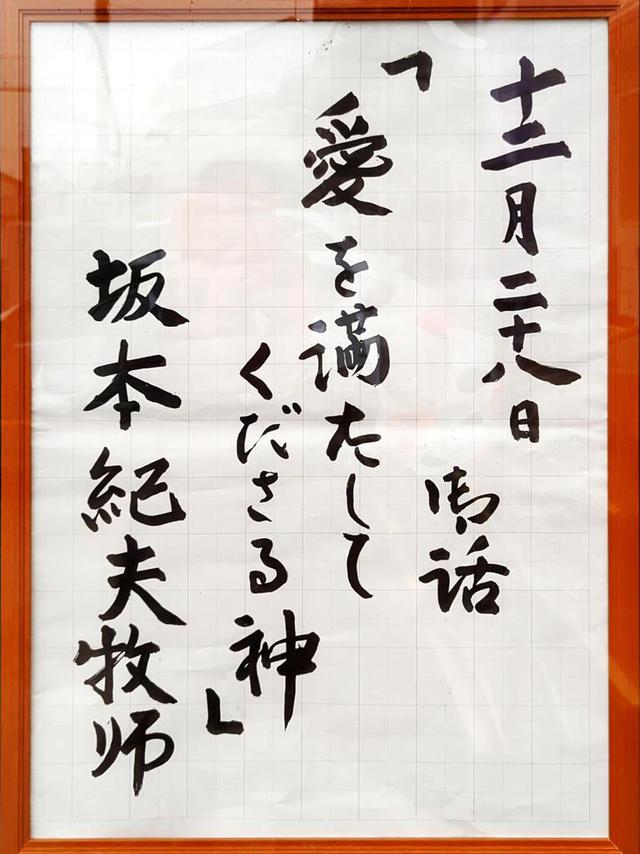 十二月二十八日
御話
「愛を満たして
くださる神」
坂本紀夫牧师